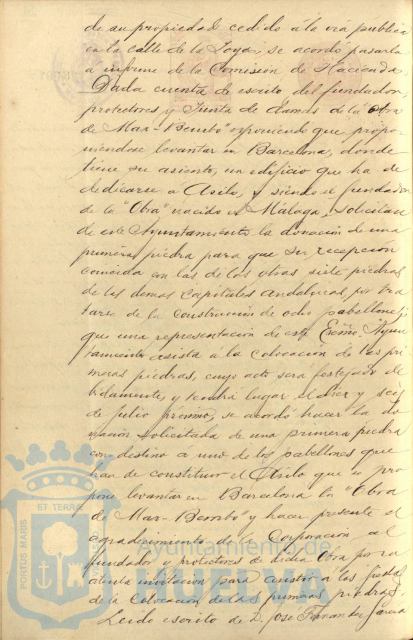 de su propiedad cedido á la via publica
en la calle de la Joya, se acordó pasarla
a informe de la Comisión de Hacienda
Dada cuenta de escrito del fundador,
protectores y Junta de damas de la Obra
de Mar-Bembó exponiendo que propo-
niendose levantar en Barcelona, donde
tiene su asiento, un edificio que ha de
dedicarse a Asilo, y siendo el fundador
de la "Obra" nacido en Málaga, solicitan
de este Ayuntamiento la donación de una
primera piedra para que su recepción
coincida con las de las otras siete piedras
de las demas capitales andaluzas, por tra
tarse de la construcción de ocho pabellones,
que una representación de este Excmo. Ayun
tamiento asista a la colocación de las pri
meras piedras, cuyo acto sera festejado de
bidamente, y tendrá lugar el diez y seis
de julio proximo, se acordó hacer la do
nación solicitada de una primera piedra
con destino a uno de los pabellones que
han de constituir el Asilo que se pro
pone levantar en Barcelona la "Obra
de Mar-Bembó" y hacer presente el
agradecimiento de la Corporación al
fundador y protectores de dicha Obra por la
atenta invitación para asistir a las fiestas
de la colocación de las primeras piedras.
Leido escrito de D. José Fernandez
PORTUS MARIS
ET TERRAE
Ayuntamiento de
HUELVA